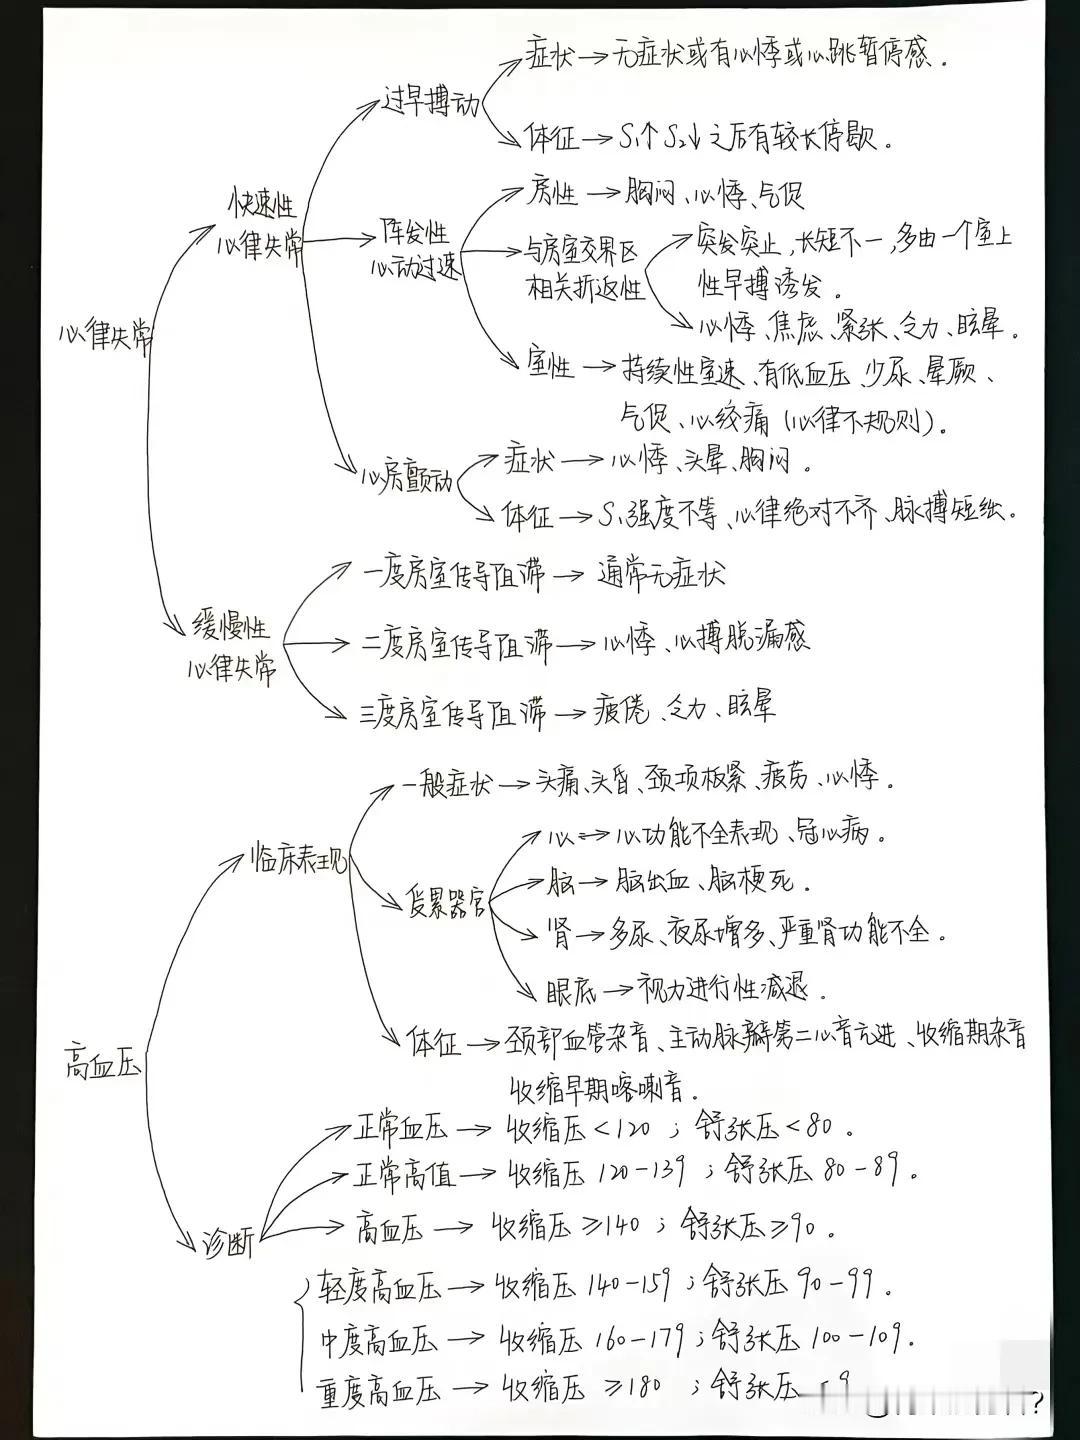 症状→无症状或有心悸或心跳暂停感.
过早搏动
体征→S₁↑S₂↓之后有较长停歇.
房性→胸闷、心悸、气促
快速性
心律失常
阵发性
心动过速
与房室交界区
相关折返性
突发突止,长短不一,多由一个室上
性早搏诱发.
心悸、焦虑、紧张、乏力、眩晕.
心律失常
室性→持续性室速、有低血压、少尿、晕厥、
气促、心绞痛(心律不规则).
心房颤动
症状→心悸、头晕、胸闷.
体征→S₁强度不等、心律绝对不齐、脉搏短绌.
缓慢性
心律失常
一度房室传导阻滞→通常无症状
二度房室传导阻滞→心悸、心搏脱漏感
三度房室传导阻滞→疲倦、乏力、眩晕
一般症状→头痛、头昏、颈项板紧、疲劳、心悸.
临床表现
受累器官
心→心功能不全表现、冠心病.
脑→脑出血、脑梗死.
肾→多尿、夜尿增多、严重肾功能不全.
眼底→视力进行性减退.
体征→颈部血管杂音、主动脉瓣第二心音亢进、收缩期杂音
收缩早期喀喇音.
高血压
诊断
正常血压→收缩压<120;舒张压<80.
正常高值→收缩压120-139;舒张压80-89.
高血压→收缩压≥140;舒张压≥90.
轻度高血压→收缩压140-159;舒张压90-99.
中度高血压→收缩压160-179;舒张压100-109.
重度高血压→收缩压≥180;舒张压